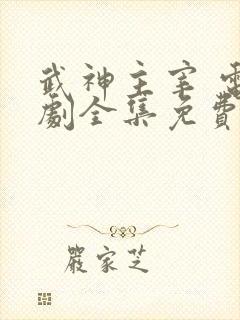 武神主宰 電
劇全集免費
嚴家芝